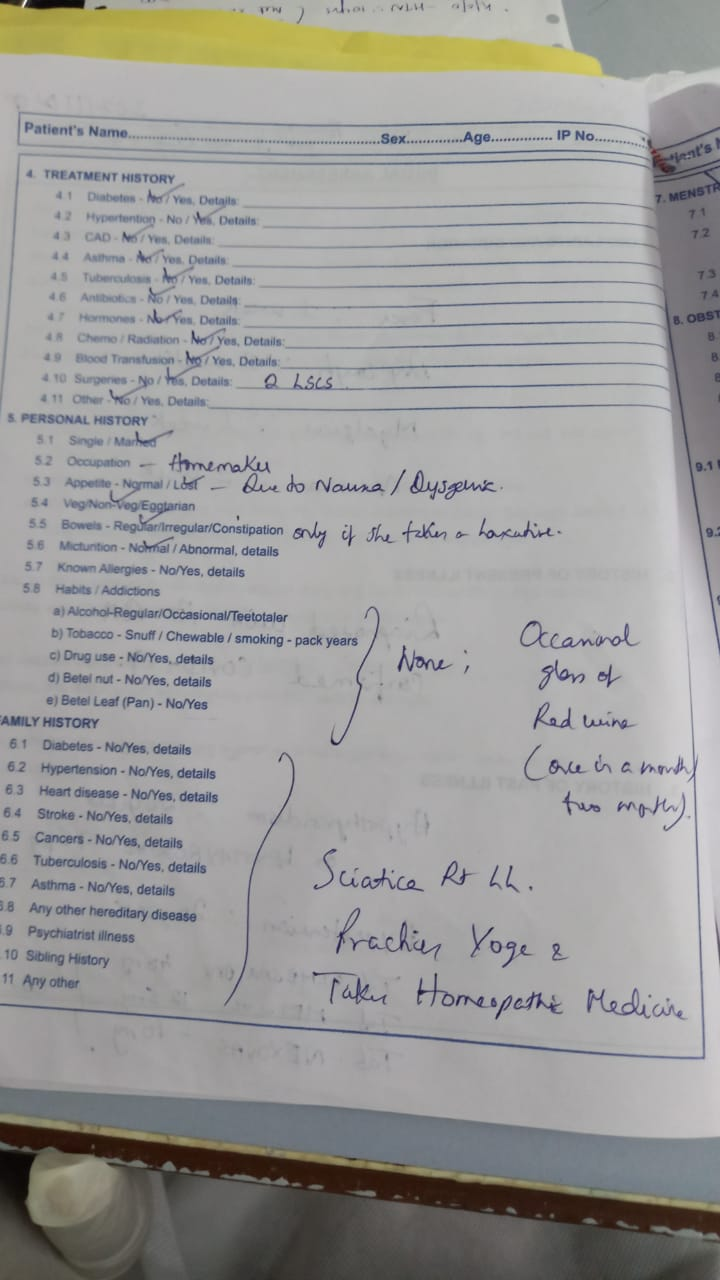 Patient's Name.....................................................Sex.............Age.............. IP No.............
4. TREATMENT HISTORY
4.1 Diabetes - No / Yes, Details:
4.2 Hypertention - No / Yes, Details:
4.3 CAD - No / Yes, Details:
4.4 Asthma - No / Yes, Details:
4.5 Tuberculosis - No / Yes, Details:
4.6 Antibiotics - No / Yes, Details:
4.7 Hormones - No / Yes, Details:
4.8 Chemo / Radiation - No / Yes, Details:
4.9 Blood Transfusion - No / Yes, Details:
4.10 Surgeries - No / Yes, Details: 2 LSCS
4.11 Other - No / Yes, Details:
5. PERSONAL HISTORY
5.1 Single / Married
5.2 Occupation - Homemaker
5.3 Appetite - Normal / Lost - Due to /
5.4 Veg/Non-Veg/Eggtarian
5.5 Bowels - Regular/Irregular/Constipation only if she takes a
5.6 Micturition - Normal / Abnormal, details
5.7 Known Allergies - No/Yes, details
5.8 Habits / Addictions
a) Alcohol-Regular/Occasional/Teetotaler
b) Tobacco - Snuff / Chewable / smoking - pack years
c) Drug use - No/Yes, details
d) Betel nut - No/Yes, details
e) Betel Leaf (Pan) - No/Yes
None ;
glass of
Red wine
(once in a month/
two month).
FAMILY HISTORY
6.1 Diabetes - No/Yes, details
6.2 Hypertension - No/Yes, details
6.3 Heart disease - No/Yes, details
6.4 Stroke - No/Yes, details
6.5 Cancers - No/Yes, details
6.6 Tuberculosis - No/Yes, details
6.7 Asthma - No/Yes, details
6.8 Any other hereditary disease
6.9 Psychiatrist illness
.10 Sibling History
11 Any other
Sciatica Rt LL.
Yoga &
Takes Homeopathic Medicine
7. MENSTR
7.1
7.2
7.3
7.4
8. OBST
9.1
9.2